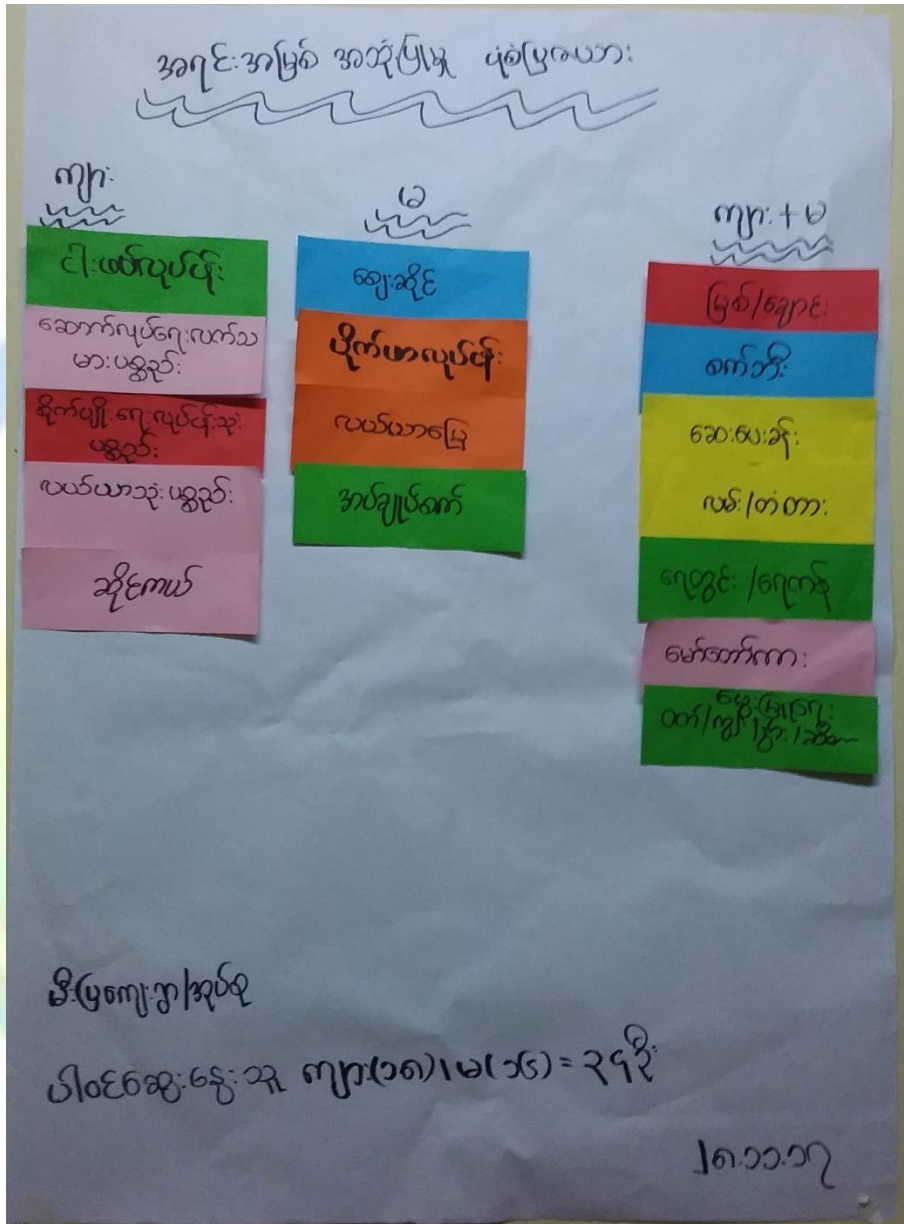 အရင်းအမြစ် အသုံးပြုမှု ပုံစံပြဇယား
ကျား
ငါးဖမ်းလုပ်ငန်း
ဆောက်လုပ်ရေးလက်သ
မားပစ္စည်း
စိုက်ပျိုးရေးလုပ်ငန်းသုံး
ပစ္စည်း
လယ်ယာသုံးပစ္စည်း
ဆိုင်ကယ်
မ
ဈေးဆိုင်
ပိုက်ဖာလုပ်ငန်း
လယ်ယာမြေ
အပ်ချုပ်စက်
ကျား+မ
မြစ်/ချောင်း
စက်ဘီး
ဆေးပေးခန်း
လမ်း/တံတား
ရေတွင်း/ရေကန်
မော်တော်ကား
မွေးမြူရေး
ဝက်/ကျွဲ/နွား/ဆိတ်
မီးပြကျေးရွာ/အုပ်စု
ပါဝင်ဆွေးနွေးသူ ကျား(၁၈)၊မ(၁၆)=၃၄ဦး
၂၈.၁၁.၁၇